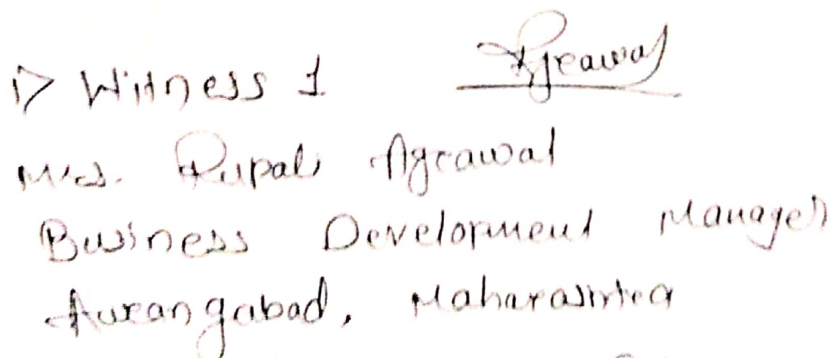 1> Witness 1 Agrawal
Mrs. Rupali Agrawal
Business Development Manager
Aurangabad, Maharashtra